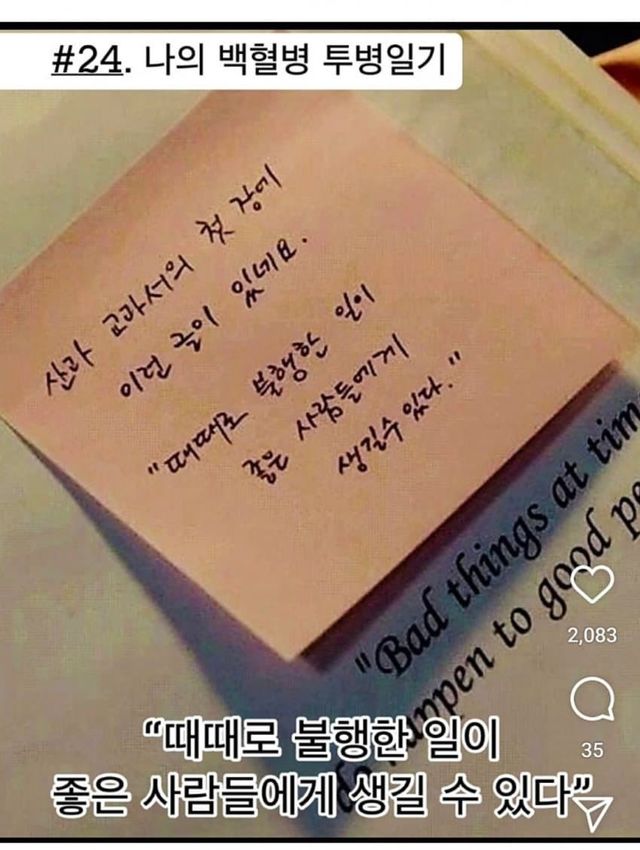 #24. 나의 백혈병 투병일기
산과 교과서의 첫 장에
이런 글이 있네요.
"때때로 불행한 일이
좋은 사람들에게
생길수 있다."
"Bad things at
happen to good
2,083
35
“때때로 불행한 일이
좋은 사람들에게 생길 수 있다”